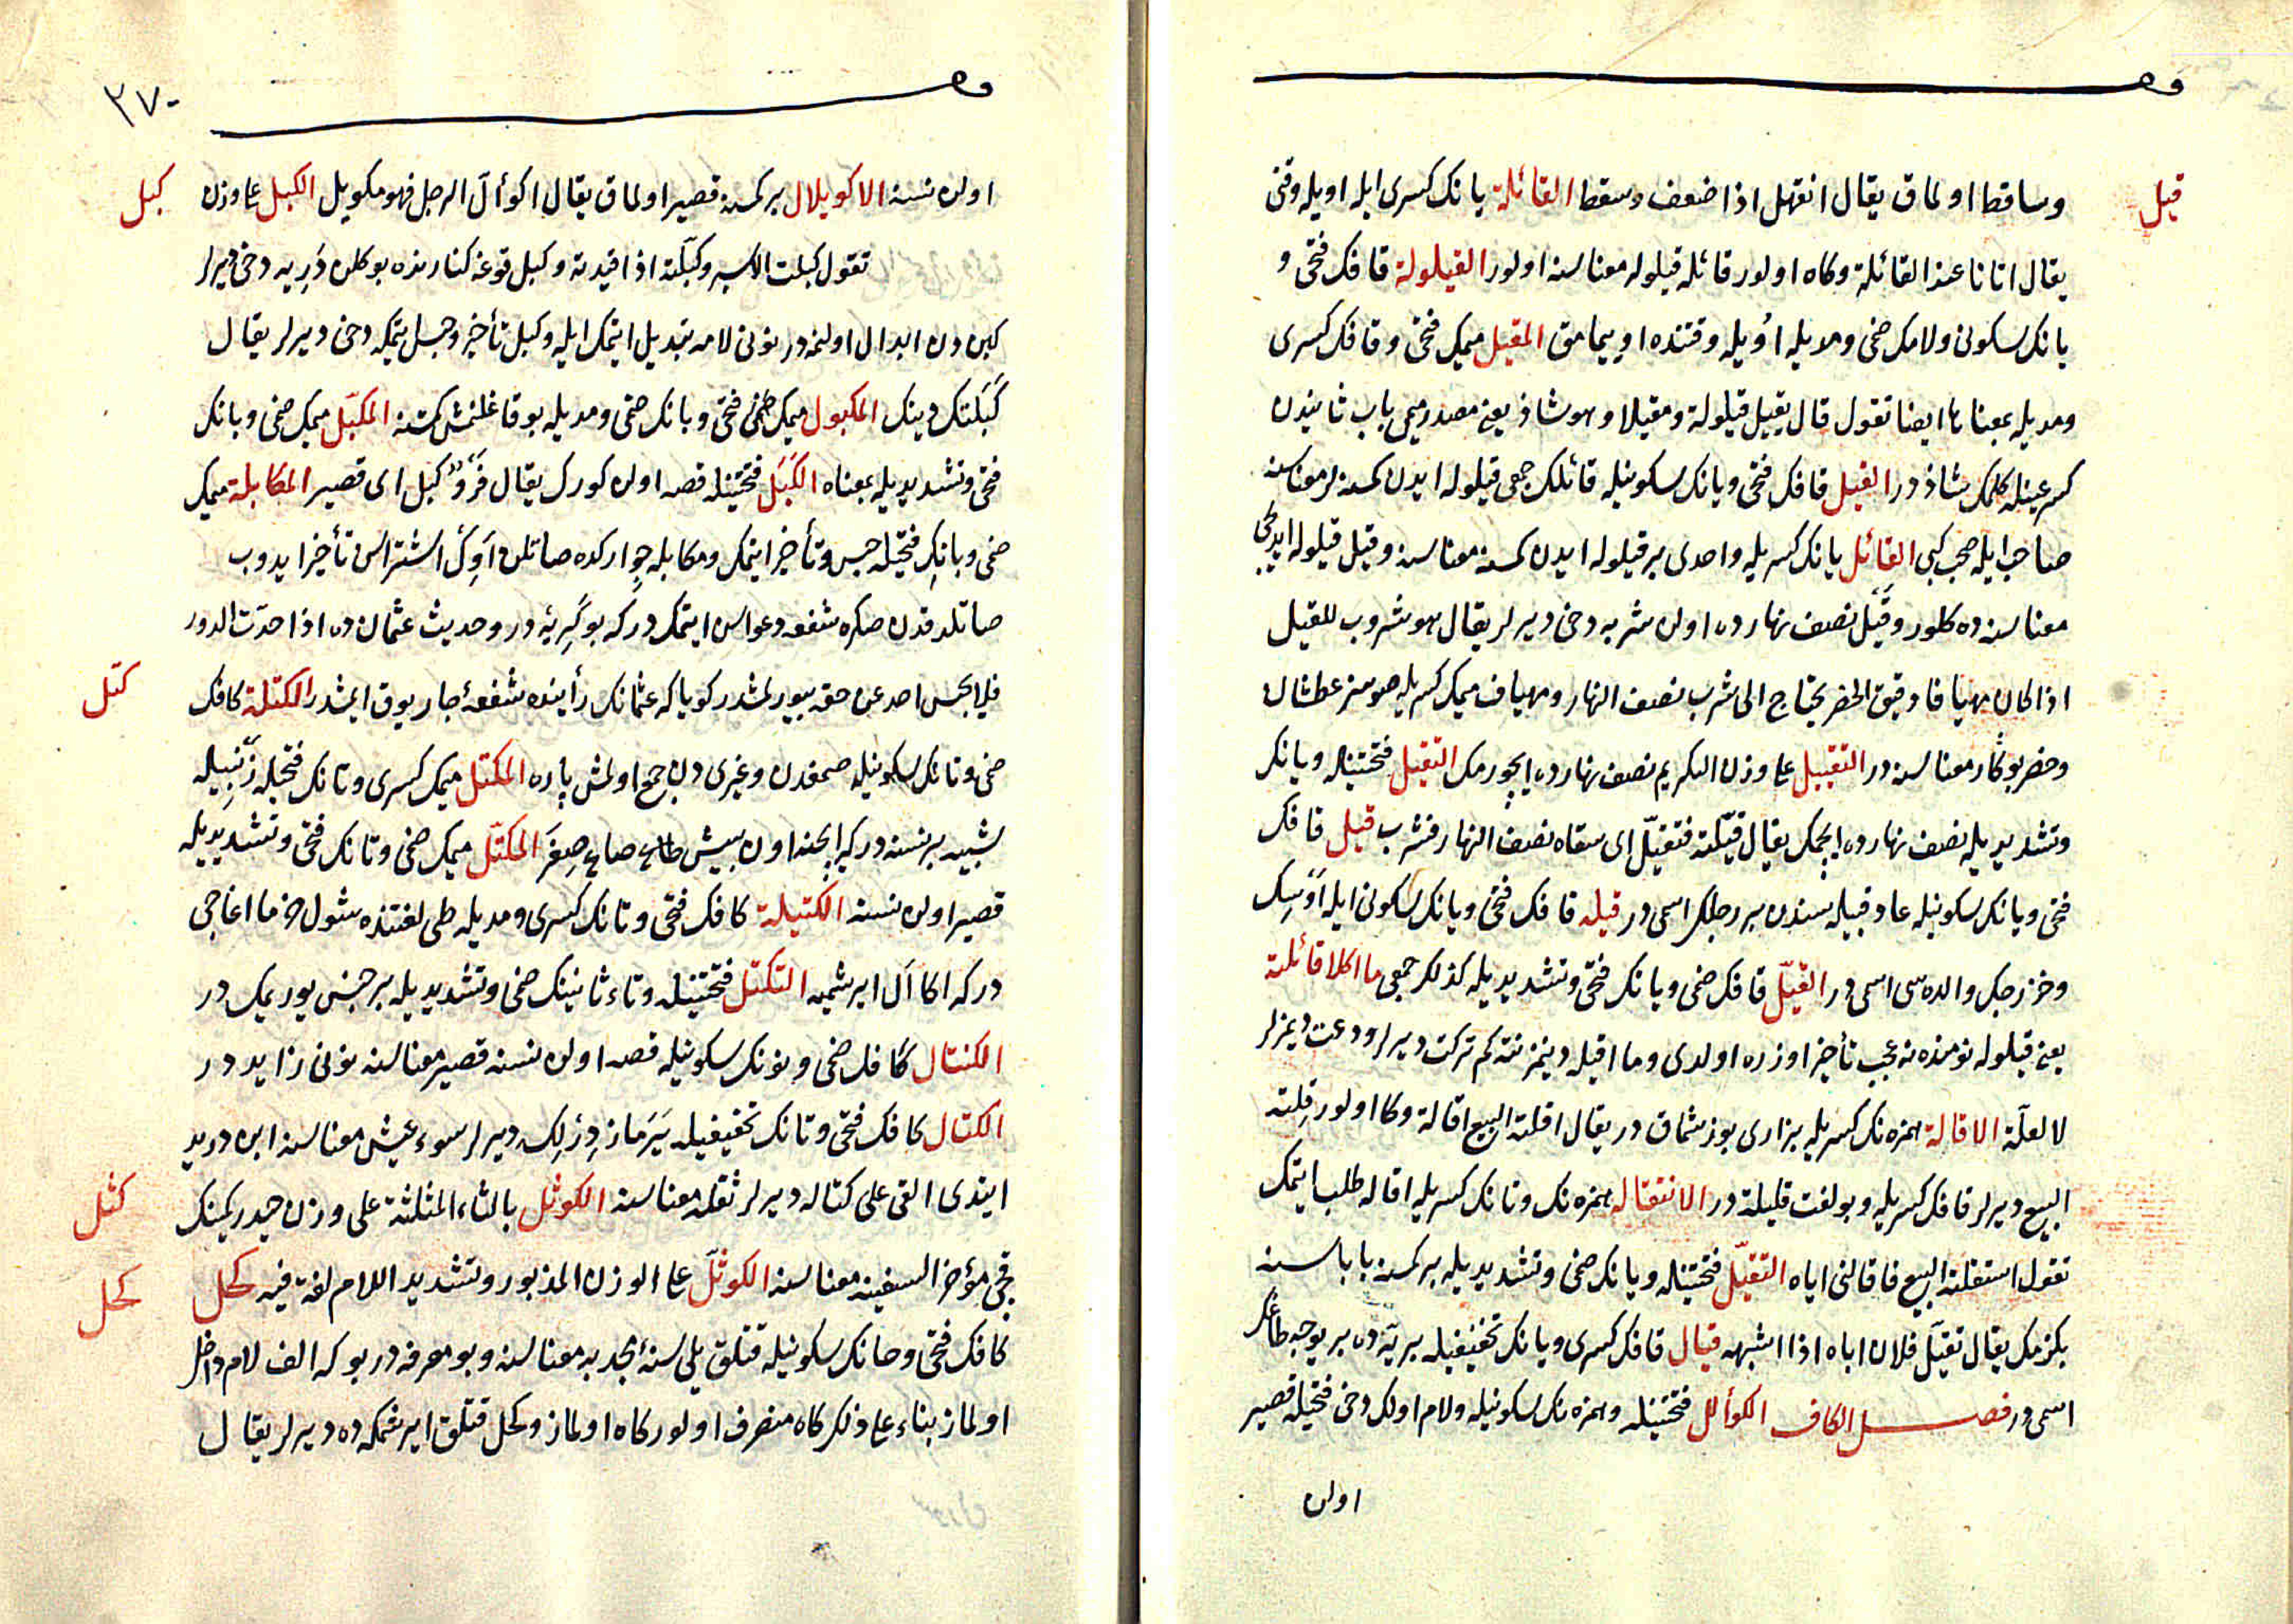 قيل
وساقط اولماق يقال انقهل اذا ضعف وسقط القائلة يانك كسرى ايله اويله وقتى
يقال اتانا عند القائلة وكاه اولور قائله قيلوله معناسنه اولور القيلولة قافك فتحى و
يانك سكونى ولامك ضمى ومديله اويله وقتنده اويمامق المقيل ميمك فتحى وقافك كسرى
ومديله بمعناها ايضا تقول قال يقيل قيلولة ومقيلا وهو شاذ يعنى مصدر ميمى باب ثانيدن
كسر عينله كلمك شاذدر القيل قافك فتحى ويانك سكونيله قائلك جمعى قيلوله ايدن كمسنه لر معناسنه
صاحب ايله صحب كبى القائل يانك كسريله واحدى بر قيلوله ايدن كمسنه معناسنه وقيل قيلوله ايديجى
معناسنه ده كلور وقيل نصف نهارده اولن شربه دخى ديرلر يقال هو شروب للقيل
اذا كان مهيافا دقيق الخصر يحتاج الى شرب نصف النهار ومهياف ميمك كسريله صوسز عطشان
وخصر بوكار معناسنه در التقييل على وزن التكريم نصف نهارده ايچورمك التقيل فتحتينله ويانك
وتشديديله نصف نهارده ايچمك يقال قيلته فتقيل اى سقاه نصف النهار فشرب قيل قافك
فتحى ويانك سكونيله عاد قبيله سندن بر رجلك اسمى در قيله قافك فتحى ويانك سكونى ايله اوسك
وخزرجك والده سى اسمى در القيل قافك ضمى ويانك فتحى وتشديديله كذلك جمعى ما اكلا قائلته
يعنى قيلوله نومنده نه عجب تأخير اوزره اولدى وما اقيله دينمز نته كم تركت ديرلر ودعت ديمزلر
لا لعلة الاقالة همزه نك كسريله بزارى بوزشماق در يقال اقلته البيع اقالة وكاه اولور قلته
البيع ديرلر قافك كسريله وبو لغت قليلة در الاستقاله همزه نك وتانك كسريله اقاله طلب ايتمك
تقول استقلته البيع فاقالنى اياه التقيل فتحتينله ويانك ضمى وتشديديله بر كمسنه باباسنه
بكزمك يقال تقيل فلان اباه اذا اشبهه قيال قافك كسرى ويانك تخفيفيله بريه ده بر يوجه طاغك
اسمى در فصل الكاف الكوألل فتحتينله وهمزه نك سكونيله ولام اولك دخى فتحيله قصير
اولن
٢٧٠
اولن نسنه الاكويلال بر كمسنه قصير اولماق يقال اكوأل الرجل فهو مكويل الكبل على وزن
كبل
تقول كبلت الاسير وكبلته اذا قيدته وكبل قوغه كنارنده بوكلن دريه دخى ديرلر
كبن دن ابدال اولنمه در نونى لامه تبديل ايتمك ايله وكبل تأخير وحبس ايتمكه دخى ديرلر يقال
كبلتك دينك المكبول ميمك فتحى وبانك ضمى ومديله بوقاغلنمش كمسنه المكبل ميمك ضمى وبانك
فتحى وتشديديله بمعناه الكبل فتحتينله قصه اولن كورك يقال فرو كبل اى قصير المكابلة ميمك
ضمى وبانك فتحيله حبس وتأخير ايتمك ومكابله جوارکده صاتلن اوك اشتراسن تأخير ايدوب
صاتلدقدن صكره شفعه دعواسن ايتمك دركه بو كريه در وحديث عثمان ده اذا حدت الدور
فلا يحبس احد عن حقه بيورلمشدر كويا كه عثمانك رأينده شفعۀ جار يوق ايمشدر الكتلة كافك
كتل
ضمى وتانك سكونيله صمغدن وغيرى دن جمع اولمش پاره المكتل ميمك كسرى وتانك فتحيله زنبيله
شبيه بر نسنه دركه ايجنه اون بيش صاع صغر المكتل ميمك ضمى وتانك فتحى وتشديديله
قصير اولن نسنه الكتيلة كافك فتحى وتانك كسرى ومديله طى لغتنده شول خرما اغاجى
دركه اكا ال ايرشميه التكتل فتحتينله وتاء ثانينك ضمى وتشديديله بر جنس يوريمك در
الكنتال كافك ضمى ونونك سكونيله قصه اولن نسنه قصير معناسنه نونى زايد در
الكتال كافك فتحى وتانك تخفيفيله يرمازدزلك ديرلر سوء عيش معناسنه ابن دريد
ايتدى القى على كتاله ديرلر ثقله معناسنه الكوثل بالثاء المثلثة على وزن حيدر كمينك
كثل
قيچى مؤخر السفينه معناسنه الكوثل على الوزن المذبور وتشديد اللام لغة فيه كحل
كحل
كافك فتحى وحانك سكونيله قتلق يلى سنۀ مجدبه معناسنه وبو معرفه در بوكه الف لام داخل
اولماز بناء على ذلك كاه منصرف اولور كاه اولماز وكحل قتلق ايرشمكه ده ديرلر يقال